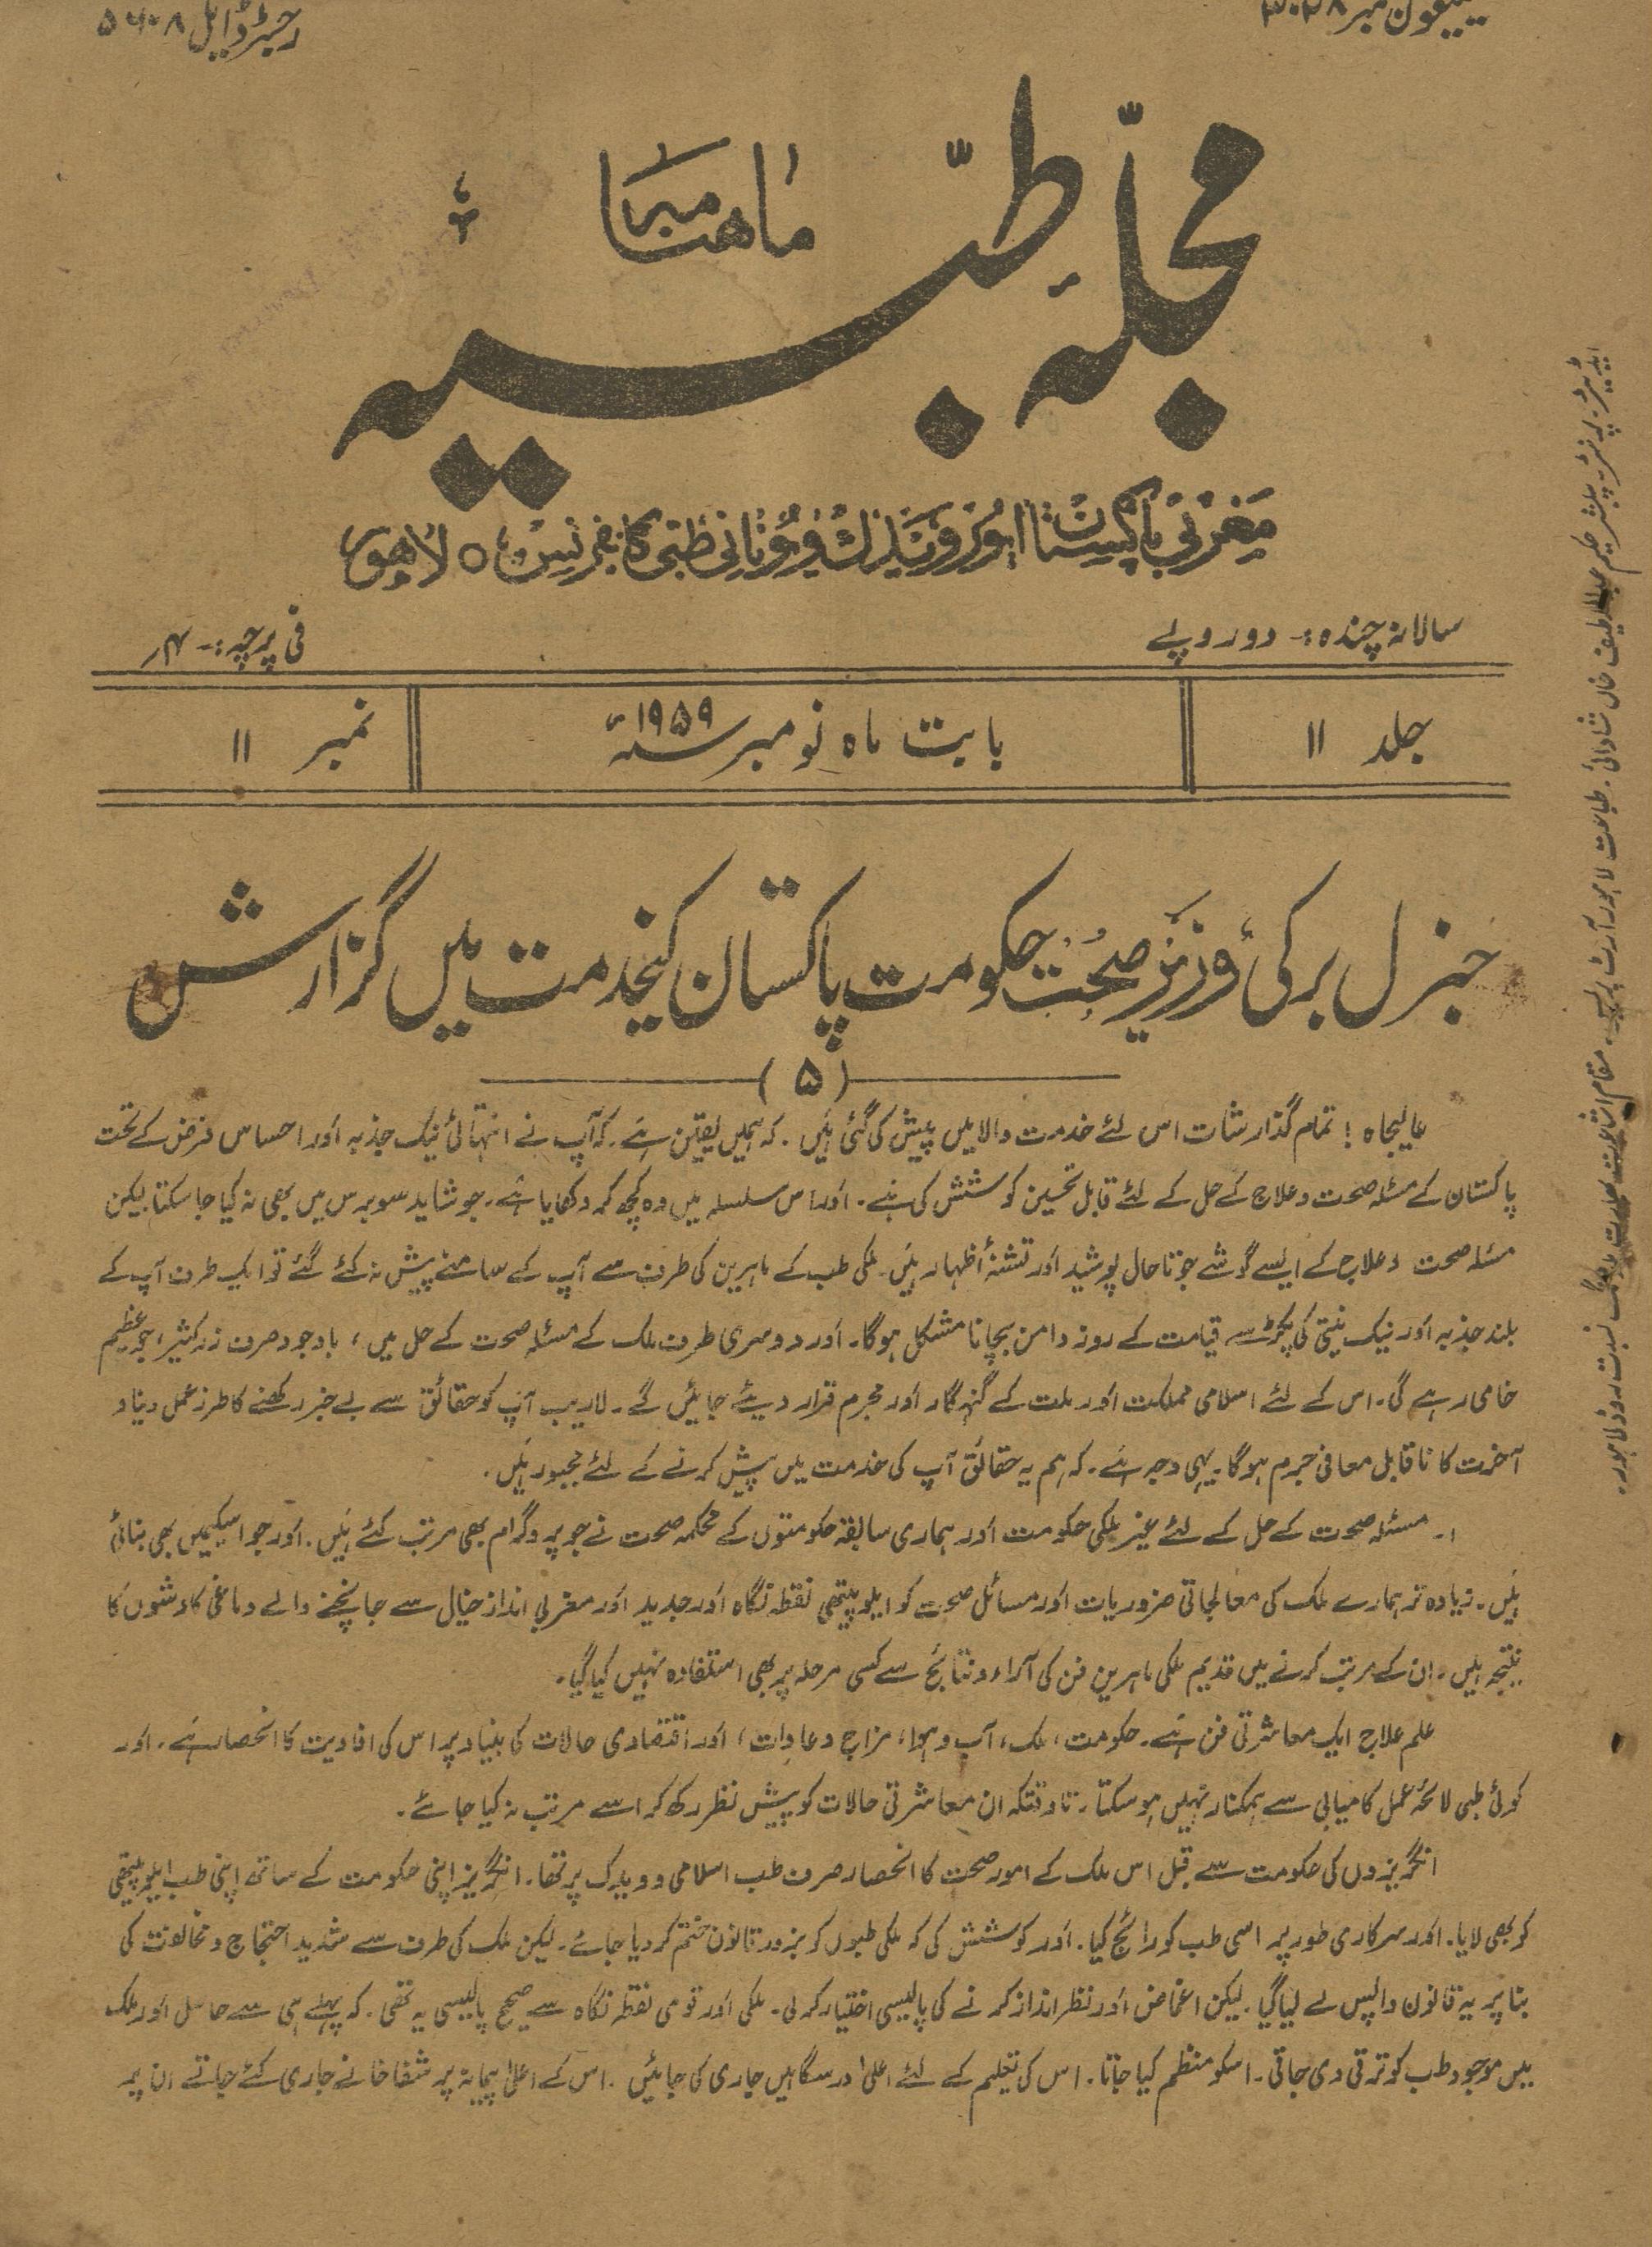 ٹیلیفون نمبر ۳۰۴۸
رجسٹرڈ ایل ۵۶۰۸
ماهنامہ
مجلّہ طبّیہ
مغربی پاکستان ایورویدک و یونانی طبی کانفرنس لاہور
سالانہ چندہ :- دو روپے
فی پرچہ :- ۴؍
جلد ۱۱
بابت ماہ نومبر سنہ ۱۹۵۹ء
نمبر ۱۱
جنرل برکی وزیر صحت حکومت پاکستان کیخدمت میں گزارش
(۵)
عالیجاہ ! تمام گذارشات اس لئے خدمت والا میں پیش کی گئی ہیں ۔ کہ ہمیں یقین ہے ۔ کہ آپ نے انتہائی نیک جذبہ اور احساس فرض کے تحت
پاکستان کے مسئلہ صحت و علاج کے حل کے لئے قابل تحسین کوشش کی ہے ۔ اور اس سلسلہ میں وہ کچھ کر دکھایا ہے ۔ جو شاید سو برس میں بھی نہ کیا جا سکتا لیکن
مسئلہ صحت و علاج کے ایسے گوشے جو تا حال پوشید اور تشنۂ اظہار ہیں ۔ ملکی طب کے ماہرین کی طرف سے آپ کے سامنے پیش نہ کئے گئے تو ایک طرف آپ کے
بلند جذبہ اور نیک نیتی کی پکڑ سے قیامت کے روز دامن بچانا مشکل ہوگا ۔ اور دوسری طرف ملک کے مسئلہ صحت کے حل میں ، باوجود صرف زر کثیر ، جو عظیم
خامی رہے گی ۔ اس کے لئے اسلامی مملکت اور ملت کے گنہگار اور مجرم قرار دیئے جائیں گے ۔ لاریب آپ کو حقائق سے بے خبر رکھنے کا طرز عمل دینا و
آخرت کا نا قابل معافی جرم ہوگا ۔ یہی وجہ ہے ۔ کہ ہم یہ حقائق آپ کی خدمت میں پیش کرنے کے لئے مجبور ہیں ۔
۱۔ مسئلہ صحت کے حل کے لئے غیر ملکی حکومت اور ہماری سابقہ حکومتوں کے محکمہ صحت نے جو پروگرام بھی مرتب کئے ہیں ۔ اور جو اسکیمیں بھی بنائی
ہیں ۔ زیادہ تر ہمارے ملک کی معالجاتی ضروریات اور مسائل صحت کو ایلوپیتھی نقطہ نگاہ اور جدید اور مغربی انداز خیال سے جانچنے والے دماغی کاوشوں کا
نتیجہ ہیں ۔ ان کے مرتب کرنے میں قدیم ملکی ماہرین فن کی آراء و نتائج سے کسی مرحلہ پر بھی استفادہ نہیں کیا گیا ۔
علم علاج ایک معاشرتی فن ہے ۔ حکومت ، ملک ، آب و ہوا ، مزاج و عادات ، اور اقتصادی حالات کی بنیاد پر اس کی افادیت کا انحصار ہے ۔ اور
کوئی طبی لائحہ عمل کامیابی سے ہمکنار نہیں ہو سکتا ۔ تاوقتیکہ ان معاشرتی حالات کو پیش نظر رکھ کر اسے مرتب نہ کیا جائے ۔
انگریزوں کی حکومت سے قبل اس ملک کے امور صحت کا انحصار صرف طب اسلامی و ویدک پر تھا ۔ انگریز اپنی حکومت کے ساتھ اپنی طب ایلوپیتھی
کو بھی لایا ۔ اور سرکاری طور پر اسی طب کو رائج کیا ۔ اور کوشش کی کہ ملکی طبوں کو بزور قانون ختم کر دیا جائے ۔ لیکن ملک کی طرف سے شدید احتجاج و مخالفت کی
بنا پر یہ قانون واپس لے لیا گیا ۔ لیکن اغماض اور نظر انداز کرنے کی پالیسی اختیار کر لی ۔ ملکی اور قومی نقطہ نگاہ سے صحیح پالیسی یہ تھی ۔ کہ پہلے ہی سے حاصل اور ملک
میں موجود طب کو ترقی دی جاتی ۔ اسکو منظم کیا جاتا ۔ اس کی تعلیم کے لئے اعلیٰ درسگاہیں جاری کی جائیں ۔ اس کے اعلیٰ پیمانہ پر شفا خانے جاری کئے جاتے ان پر
ایڈیٹر ۔ پرنٹر ۔ پبلشر حکیم عبداللطیف خاں شادانی ۔ طباعت لاہور آرٹ پریس ۔ مقام اشاعت نسبت روڈ لاہور ۔